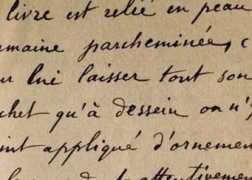 livre est relié en peau
umaine parcheminée, c
ur lui laisser tout son
chet qu'à dessein on n'y
int appliqué d'ornemen
attentivemen